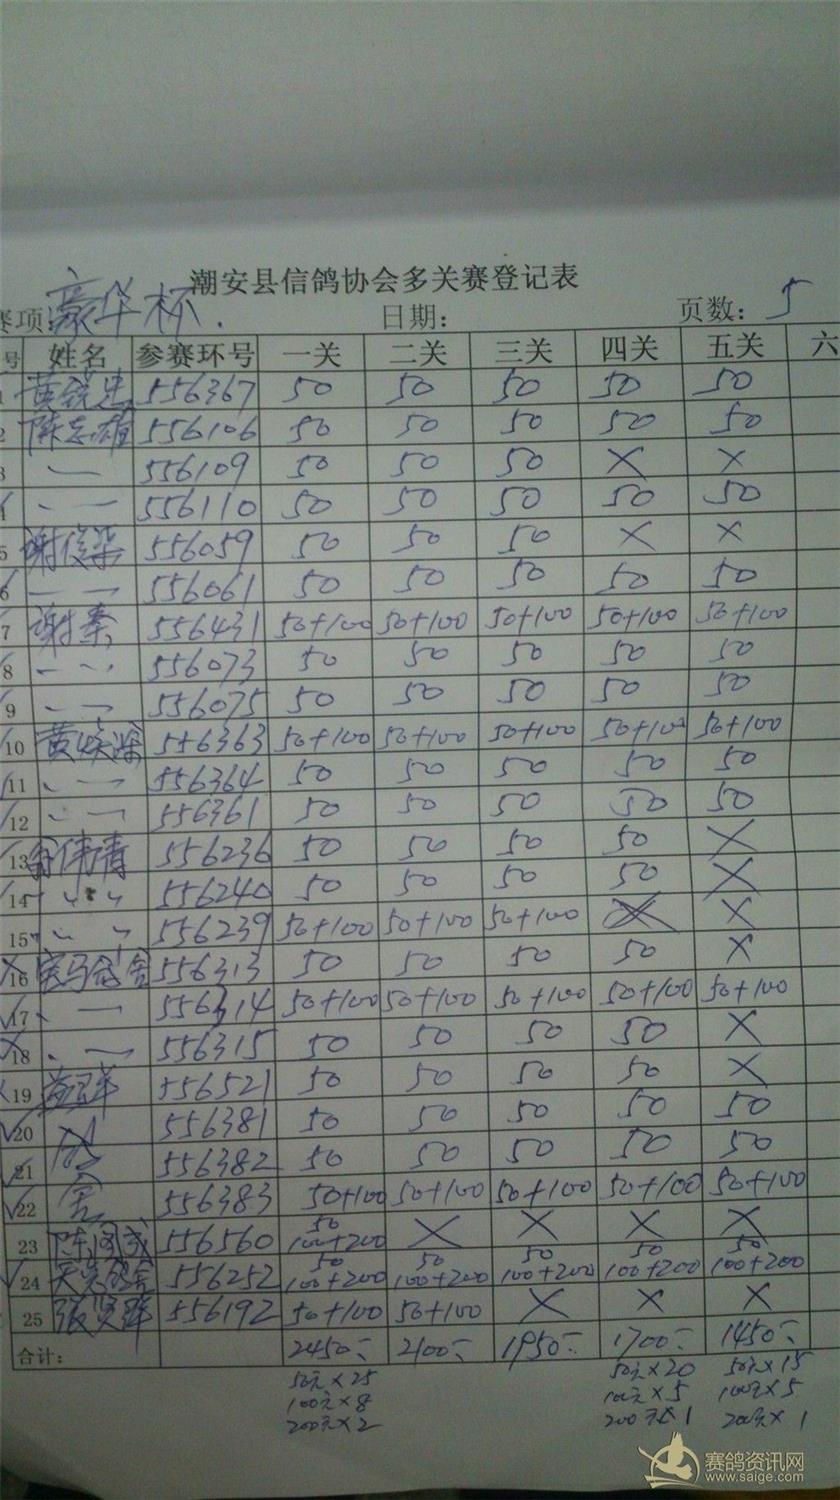 潮安县信鸽协会多关赛登记表
赛项: 豪华杯. 日期: 页数: 5
号 姓名 参赛环号 一关 二关 三关 四关 五关 六
1 556367 50 50 50 50 50
2 陈志雄 556106 50 50 50 50 50
3 〃 556109 50 50 50 × ×
4 〃 556110 50 50 50 50 50
5 谢俊榮 556059 50 50 50 × ×
6 〃 556061 50 50 50 50 50
7 谢秦 556431 50+100 50+100 50+100 50+100 50+100
8 〃 556073 50 50 50 50 50
9 〃 556075 50 50 50 50 50
10 556363 50+100 50+100 50+100 50+100 50+100
11 〃 556364 50 50 50 50 50
12 〃 556361 50 50 50 50 50
13 伟靖 556236 50 50 50 50 ×
14 〃 556240 50 50 50 50 ×
15 〃 556239 50+100 50+100 50+100 × ×
16 宝马鸽舍 556313 50 50 50 50 ×
17 〃 556314 50+100 50+100 50+100 50+100 50+100
18 〃 556315 50 50 50 50 ×
19 556521 50 50 50 50 ×
20 556381 50 50 50 50 50
21 556382 50 50 50 50 50
22 556383 50+100 50+100 50+100 50+100 50+100
23 556560 50 100+200 × × × ×
24 556252 50 100+200 50 100+200 50 100+200 50 100+200 50 100+200
25 张贤群 556192 50+100 50+100 × × ×
合计: 2450 2100 1950 1700 1450
50元×25 50元×20 50元×15
100元×8 100元×5 100元×5
200元×2 200元×1 200元×1
赛鸽资讯网
www.saige.com